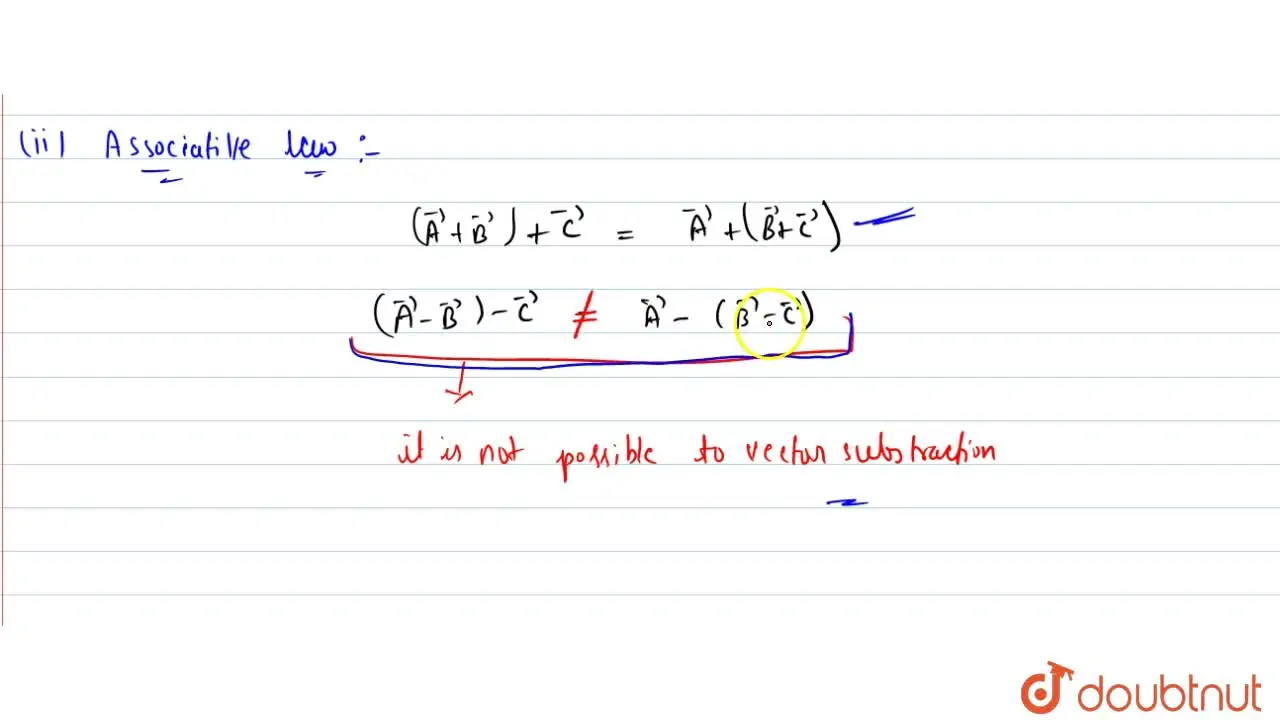 (ii) Associative law :-
(A⃗ + B⃗) + C⃗ = A⃗ + (B⃗ + C⃗)
(A⃗ - B⃗) - C⃗ ≠ A⃗ - (B⃗ - C⃗)
it is not possible to vector substraction
doubtnut